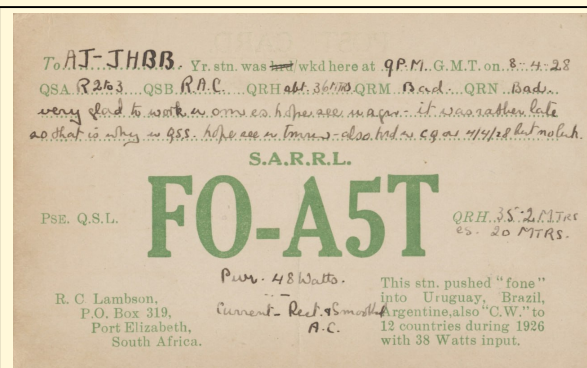 To AJ-JHBB. Yr. stn. was hrd/wkd here at 9P.M. G.M.T. on 8-4-28
QSA R2to3 QSB R.A.C. QRH abt. 36MTRS QRM Bad QRN Bad.
very glad to work u om es hope see u agn - it was rather late
so that is why u QSS. hope see u tmrw - also hrd u cq on 4/4/28 but no luck.
S.A.R.R.L.
PSE. Q.S.L.
FO-A5T
QRH. 35.2 MTRS
es. 20 MTRS.
Pwr. 48 Watts.
Current - Rect. & Smooth
A.C.
R. C Lambson,
P.O. Box 319,
Port Elizabeth,
South Africa.
This stn. pushed "fone"
into Uruguay, Brazil,
Argentine, also "C.W." to
12 countries during 1926
with 38 Watts input.